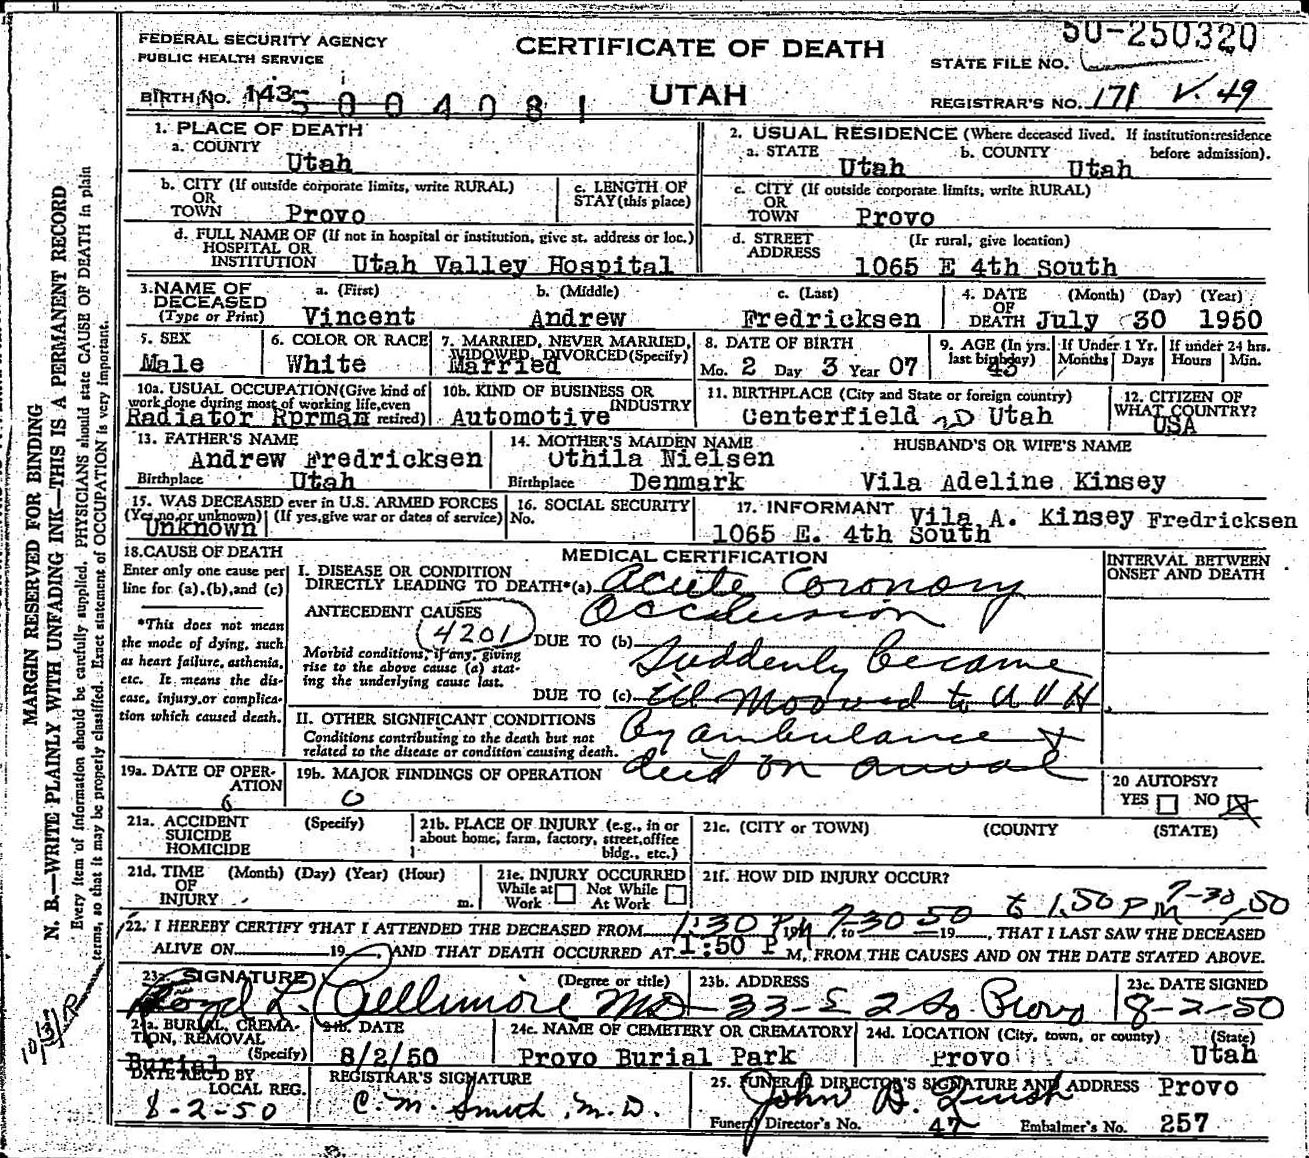 50-250320
FEDERAL SECURITY AGENCY
PUBLIC HEALTH SERVICE
CERTIFICATE OF DEATH
STATE FILE NO.
BIRTH NO. 143 5004081
UTAH
REGISTRAR'S NO. 171 V. 49
MARGIN RESERVED FOR BINDING
N. B.—WRITE PLAINLY WITH UNFADING INK—THIS IS A PERMANENT RECORD
Every item of information should be carefully supplied. PHYSICIANS should state CAUSE OF DEATH in plain
terms, so that it may be properly classified. Exact statement of OCCUPATION is very important.
1. PLACE OF DEATH
a. COUNTY
Utah
2. USUAL RESIDENCE (Where deceased lived. If institution:residence
before admission).
a. STATE Utah b. COUNTY Utah
b. CITY (If outside corporate limits, write RURAL)
OR
TOWN Provo
c. LENGTH OF
STAY (this place)
c. CITY (If outside corporate limits, write RURAL)
OR
TOWN Provo
d. FULL NAME OF (If not in hospital or institution, give st. address or loc.)
HOSPITAL OR
INSTITUTION Utah Valley Hospital
d. STREET (Ir rural, give location)
ADDRESS
1065 E 4th South
3. NAME OF
DECEASED
(Type or Print)
a. (First) b. (Middle) c. (Last)
Vincent Andrew Fredricksen
4. DATE (Month) (Day) (Year)
OF
DEATH July 30 1950
5. SEX
Male
6. COLOR OR RACE
White
7. MARRIED, NEVER MARRIED,
WIDOWED, DIVORCED (Specify)
Married
8. DATE OF BIRTH
Mo. 2 Day 3 Year 07
9. AGE (In yrs.
last birthday)
43
If Under 1 Yr.
Months Days
If under 24 hrs.
Hours Min.
10a. USUAL OCCUPATION (Give kind of
work done during most of working life, even
retired)
Radiator Rprman
10b. KIND OF BUSINESS OR
INDUSTRY
Automotive
11. BIRTHPLACE (City and State or foreign country)
Centerfield Utah
12. CITIZEN OF
WHAT COUNTRY?
USA
13. FATHER'S NAME
Andrew Fredricksen
Birthplace Utah
14. MOTHER'S MAIDEN NAME
Othila Nielsen
Birthplace Denmark
HUSBAND'S OR WIFE'S NAME
Vila Adeline Kinsey
15. WAS DECEASED ever in U.S. ARMED FORCES
(Yes no or unknown) (If yes, give war or dates of service)
Unknown
16. SOCIAL SECURITY
No.
17. INFORMANT Vila A. Kinsey Fredricksen
1065 E. 4th South
18. CAUSE OF DEATH
Enter only one cause per
line for (a), (b), and (c)
*This does not mean
the mode of dying, such
as heart failure, asthenia,
etc. It means the dis-
case, injury, or complica-
tion which caused death.
MEDICAL CERTIFICATION
INTERVAL BETWEEN
ONSET AND DEATH
I. DISEASE OR CONDITION
DIRECTLY LEADING TO DEATH*(a) Acute Coronory
Occlusion
ANTECEDENT CAUSES
4201
DUE TO (b)
Morbid conditions, if any, giving
rise to the above cause (a) stat-
ing the underlying cause last.
Suddenly became
DUE TO (c) ill Mooved to U V H
II. OTHER SIGNIFICANT CONDITIONS
Conditions contributing to the death but not
related to the disease or condition causing death.
By ambulance +
died on arival
19a. DATE OF OPER-
ATION
0
19b. MAJOR FINDINGS OF OPERATION
0
20 AUTOPSY?
YES NO
21a. ACCIDENT (Specify)
SUICIDE
HOMICIDE
21b. PLACE OF INJURY (e.g., in or
about home, farm, factory, street, office
bldg., etc.)
21c. (CITY or TOWN) (COUNTY (STATE)
21d. TIME (Month) (Day) (Year) (Hour)
OF
INJURY m.
21e. INJURY OCCURRED
While at Not While
Work At Work
21f. HOW DID INJURY OCCUR?
to 1.50 P M 7-30, 50
22. I HEREBY CERTIFY THAT I ATTENDED THE DECEASED FROM 1:30 P M 19 , to 7 30 50 19 , THAT I LAST SAW THE DECEASED
ALIVE ON 19 , AND THAT DEATH OCCURRED AT 1:50 P M, FROM THE CAUSES AND ON THE DATE STATED ABOVE.
23a. SIGNATURE (Degree or title)
Floyd L. Cullimore MD
23b. ADDRESS
33-E 2 So Provo
23c. DATE SIGNED
8-2-50
24a. BURIAL, CREMA-
TION, REMOVAL
(Specify)
Burial
24b. DATE
8/2/50
24c. NAME OF CEMETERY OR CREMATORY
Provo Burial Park
24d. LOCATION (City, town, or county) (State)
Provo Utah
DATE REC'D BY
LOCAL REG.
8-2-50
REGISTRAR'S SIGNATURE
C. M. Smith, M. D.
25. FUNERAL DIRECTOR'S SIGNATURE AND ADDRESS Provo
Funeral Director's No. 47 Embalmer's No. 257